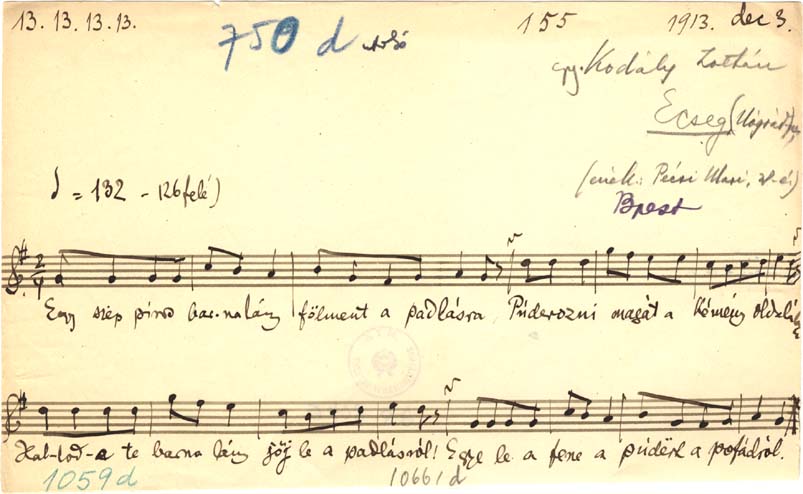 13. 13. 13. 13.
750 d utolsó
155
1913. dec 3.
gy. Kodály Zoltán
Ecseg (Nógrád)
= 132 - 126 felé)
(ének.: Pécsi Mari,
Bpest
2/4
Egy szép piros bar-na lány fölment a padlásra Púderozni magát a kémény oldalába
Hal-lod-a te barna lány jöjj le a padlásról! Egye le a fene a púdert a pofádról.
1059 d
1066 / d